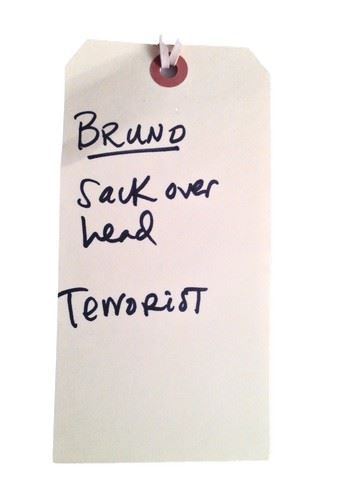 BRUNO
Sack over
head
TERRORIST